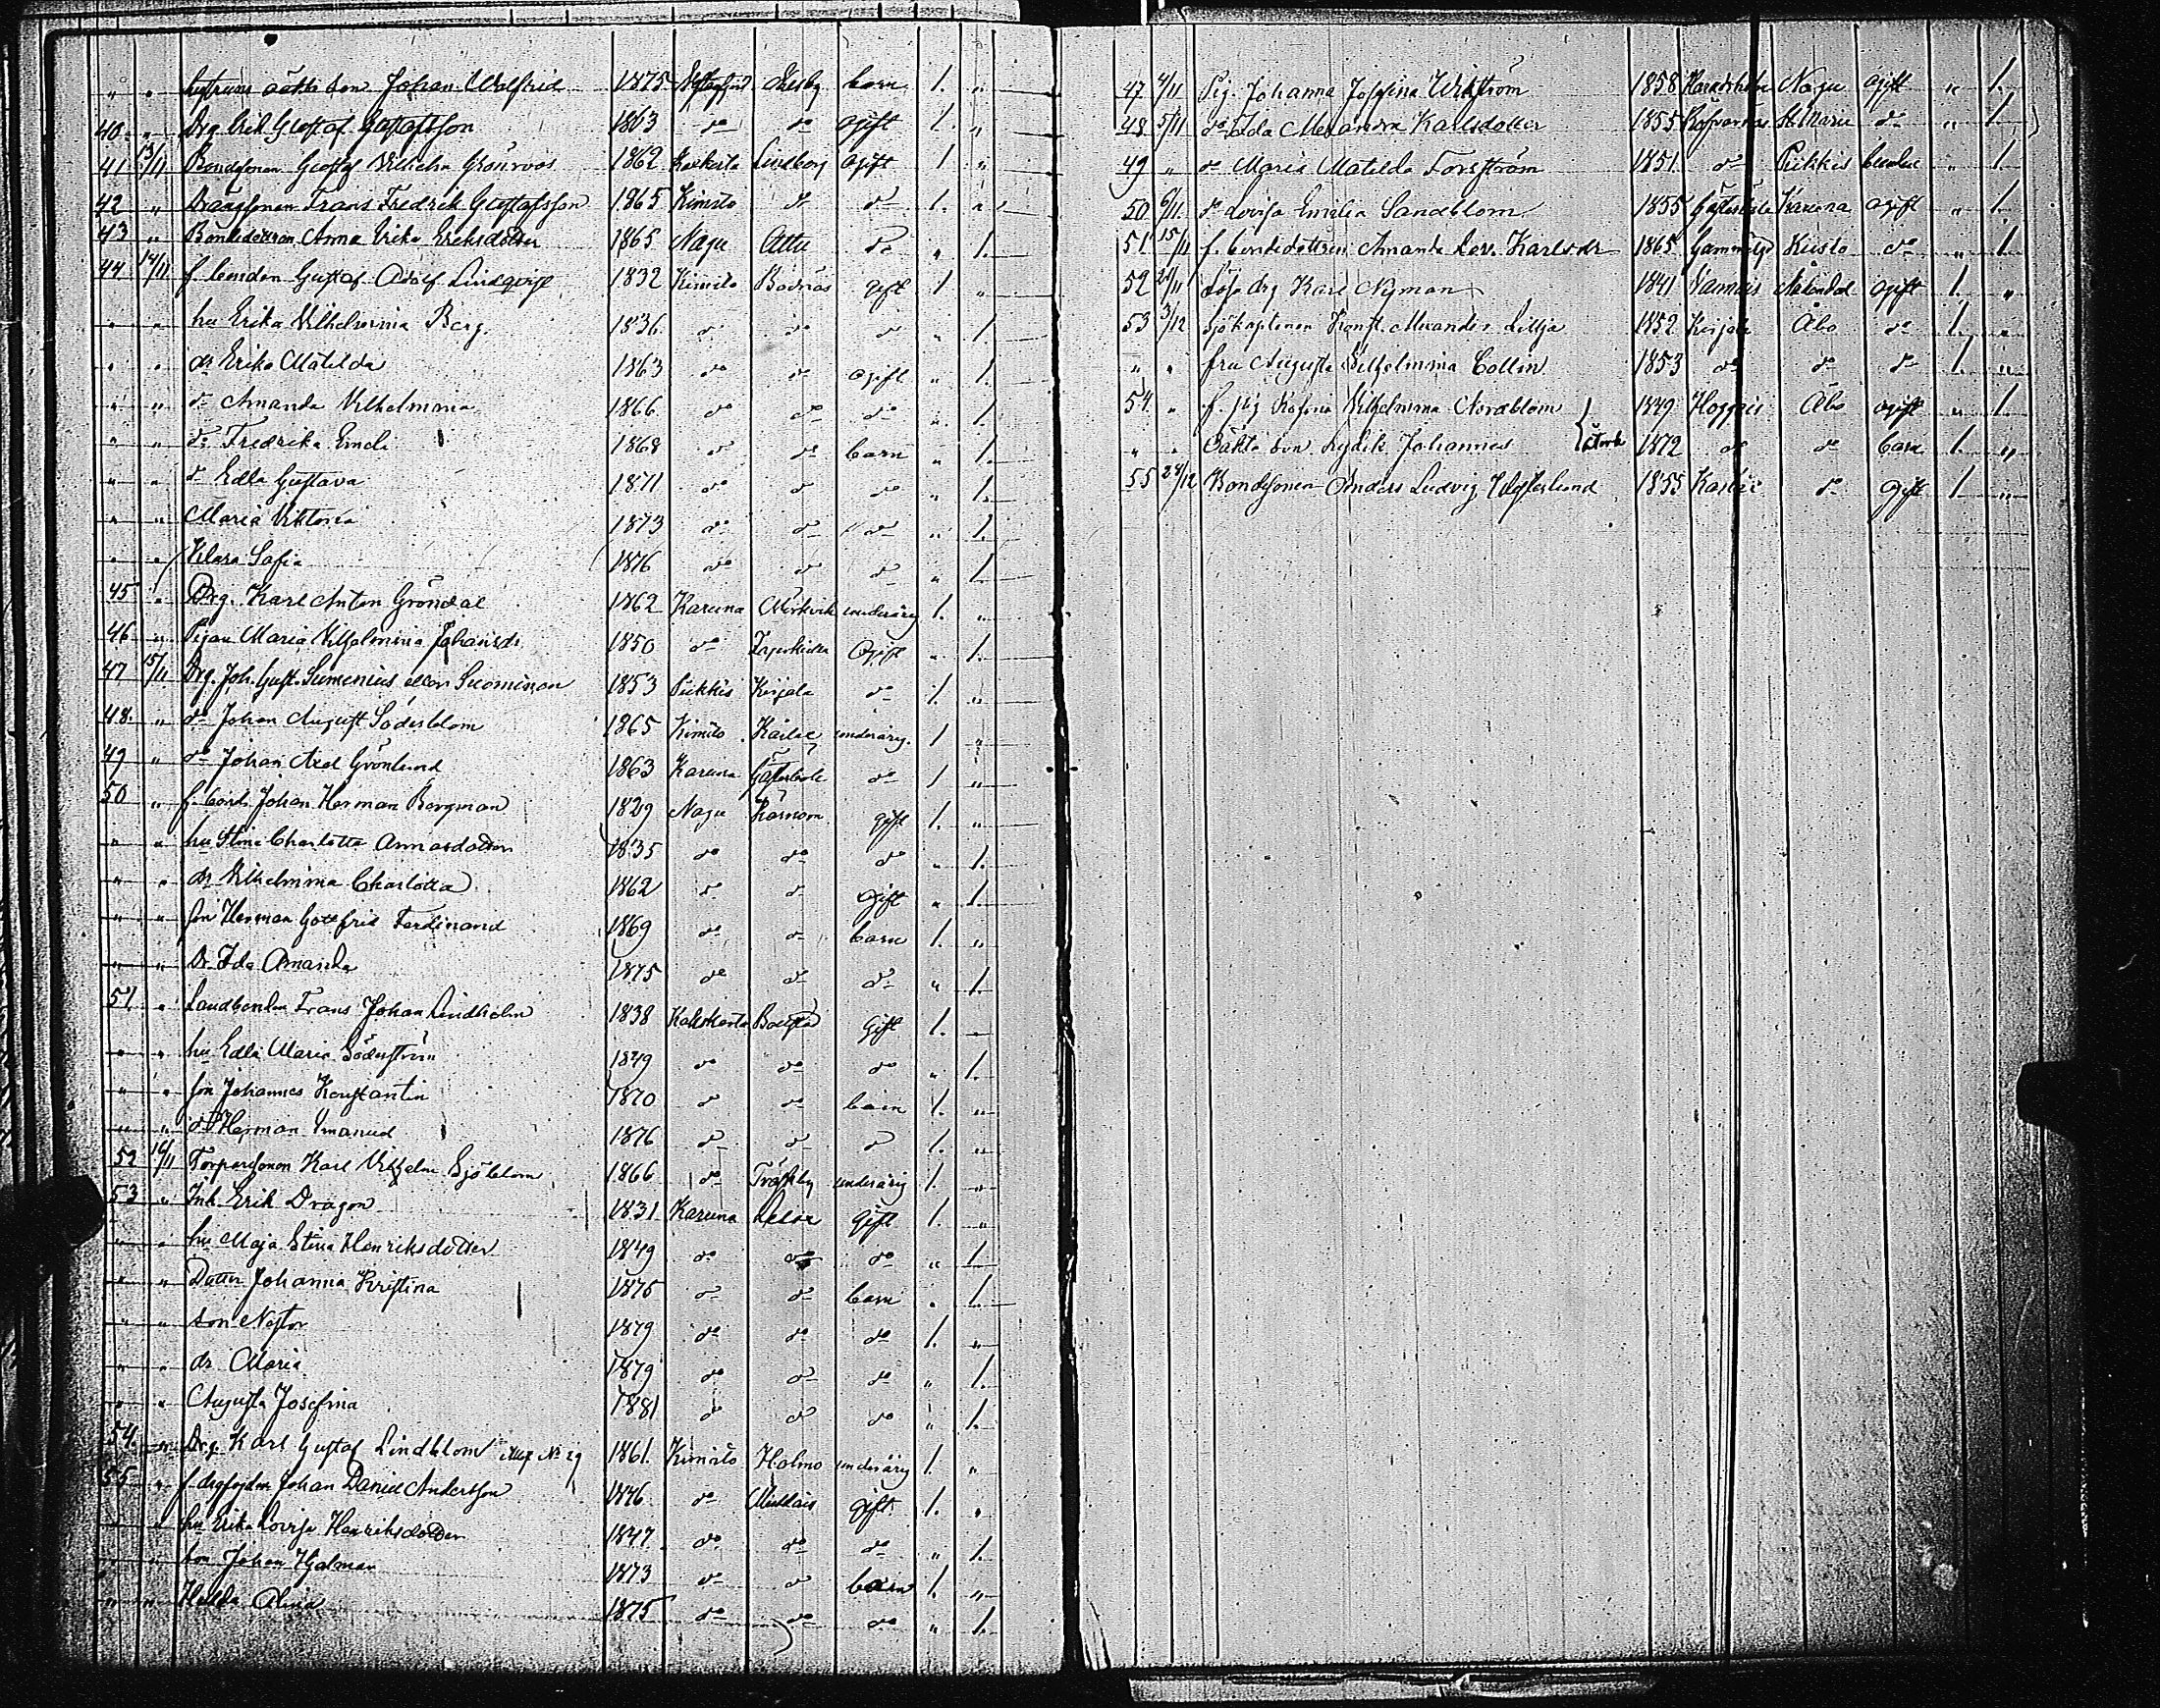 " " hustruns oäkta son Johan Walfrid 1875 barn 1. "
40. " Drg. Erik Gustaf Gustafsson 1863 do do ogift 1. "
41 13/11 Bondesonen Gustaf Vilhelm Grönroos 1862 Lindborg ogift 1 "
42 " Drängsonen Frans Fredrik Gustafsson 1865 Kimito do do 1. "
43 " Bondedottren Anna Erika Eriksdotter 1865 Nagu Attu do " 1.
44 14/11 f. bonden Gustaf Adolf Lindqvist 1832 Kimito gift 1 "
" " hu Erika Vilhelmina Berg. 1836. do do do " 1.
" " dr Erika Matilda 1863 do do ogift " 1.
" " do Amanda Vilhelmina 1866. do do do " 1.
" " do Fredrika Emeli 1868 do do barn " 1.
" " do Edla Gustava 1871 do do do " 1.
" " Maria Viktoria 1873 do do do " 1.
" " Klara Sofia 1876 do do do " 1.
45 " Drg. Karl Anton Gröndal 1862 Karuna underårig 1. "
46 " Pigan Maria Vilhelmina Johansdr 1850 do Ogift " 1.
47 15/11 Drg. Joh. Gust. Sumenius eller Suominen 1853 Pikkis Kirjala do 1. "
48. " do Johan August Söderblom 1865 Kimito underårig. 1 "
49 " do Johan Axel Grönlund 1863 Karuna do 1 "
50 " f. Johan Herman Bergman 1829 Nagu gift 1. "
" " hu Stina Charlotta 1835 do do do " 1.
" " dr Vilhelmina Charlotta 1862 do do ogift " 1.
" " son Herman Gottfrid Ferdinand 1869 do do barn 1. "
" " Dr Ida Amanda 1875 do do do " 1.
51 " Landbonden Frans Johan Lindholm 1838 Gift 1. "
" " hu Edla Maria Söderström 1849 do do do " 1.
" " son Johannes Konstantin 1870 do do barn 1. "
" " do Herman Emanuel 1876 do do do 1. "
52 16/11 Torparsonen Karl Vilhelm Sjöblom 1866 do Träskby underårig 1. "
53 " Inh. Erik Dragon 1831 Karuna gift 1. "
" " hu Maja Stina Henriksdotter 1849 do do do " 1
" " Dotter Johanna Kristina 1875 do do barn " 1.
" " son Nestor 1879 do do do 1. "
" " dr Maria 1879 do do do " 1.
" " Augusta Josefina 1881 do do do " 1.
54. " Drg. Karl Gustaf Lindblom No 29 1861. Kimito Holmo underårig 1. "
55 " f. Johan Daniel Andersson 1846 do gift 1. "
" " hu Erika Lovisa Henriksdotter 1847 do do do " 1.
" " son Johan Hjalmar 1873 do do barn 1. "
" " Hilda Alina 1875 do do do " 1.
47 4/11 Pig. Johanna Josefina Wikström 1858 Nagu ogift " 1.
48 5/11 do Ida Alexandra Karlsdotter 1855 St Marie do " 1
49 " do Maria Matilda Forsström 1851. do Pikkis " 1
50 6/11 do Lovisa Emilia Sandblom 1855 Karuna ogift " 1.
51 15/11 f. bondedottren Amanda Lov. Karlsdr 1865 Kusto do " 1
52 21/11 Lösa drg Karl Nyman 1841 Nådendal ogift 1. "
53 3/12 Sjökaptenen Konst. Alexander Lillja 1852 Kirjala Åbo do 1. "
" " fru Augusta Vilhelmina Collin 1853 do do do 1. "
54. " f. pig Rosina Vilhelmina Nordblom 1849 Åbo ogift " 1
" " Oäkta son Fredrik Johannes 1872 do do barn 1. "
55 28/12 Bondsonen Anders Ludvig Westerlund 1855 do gift 1 "